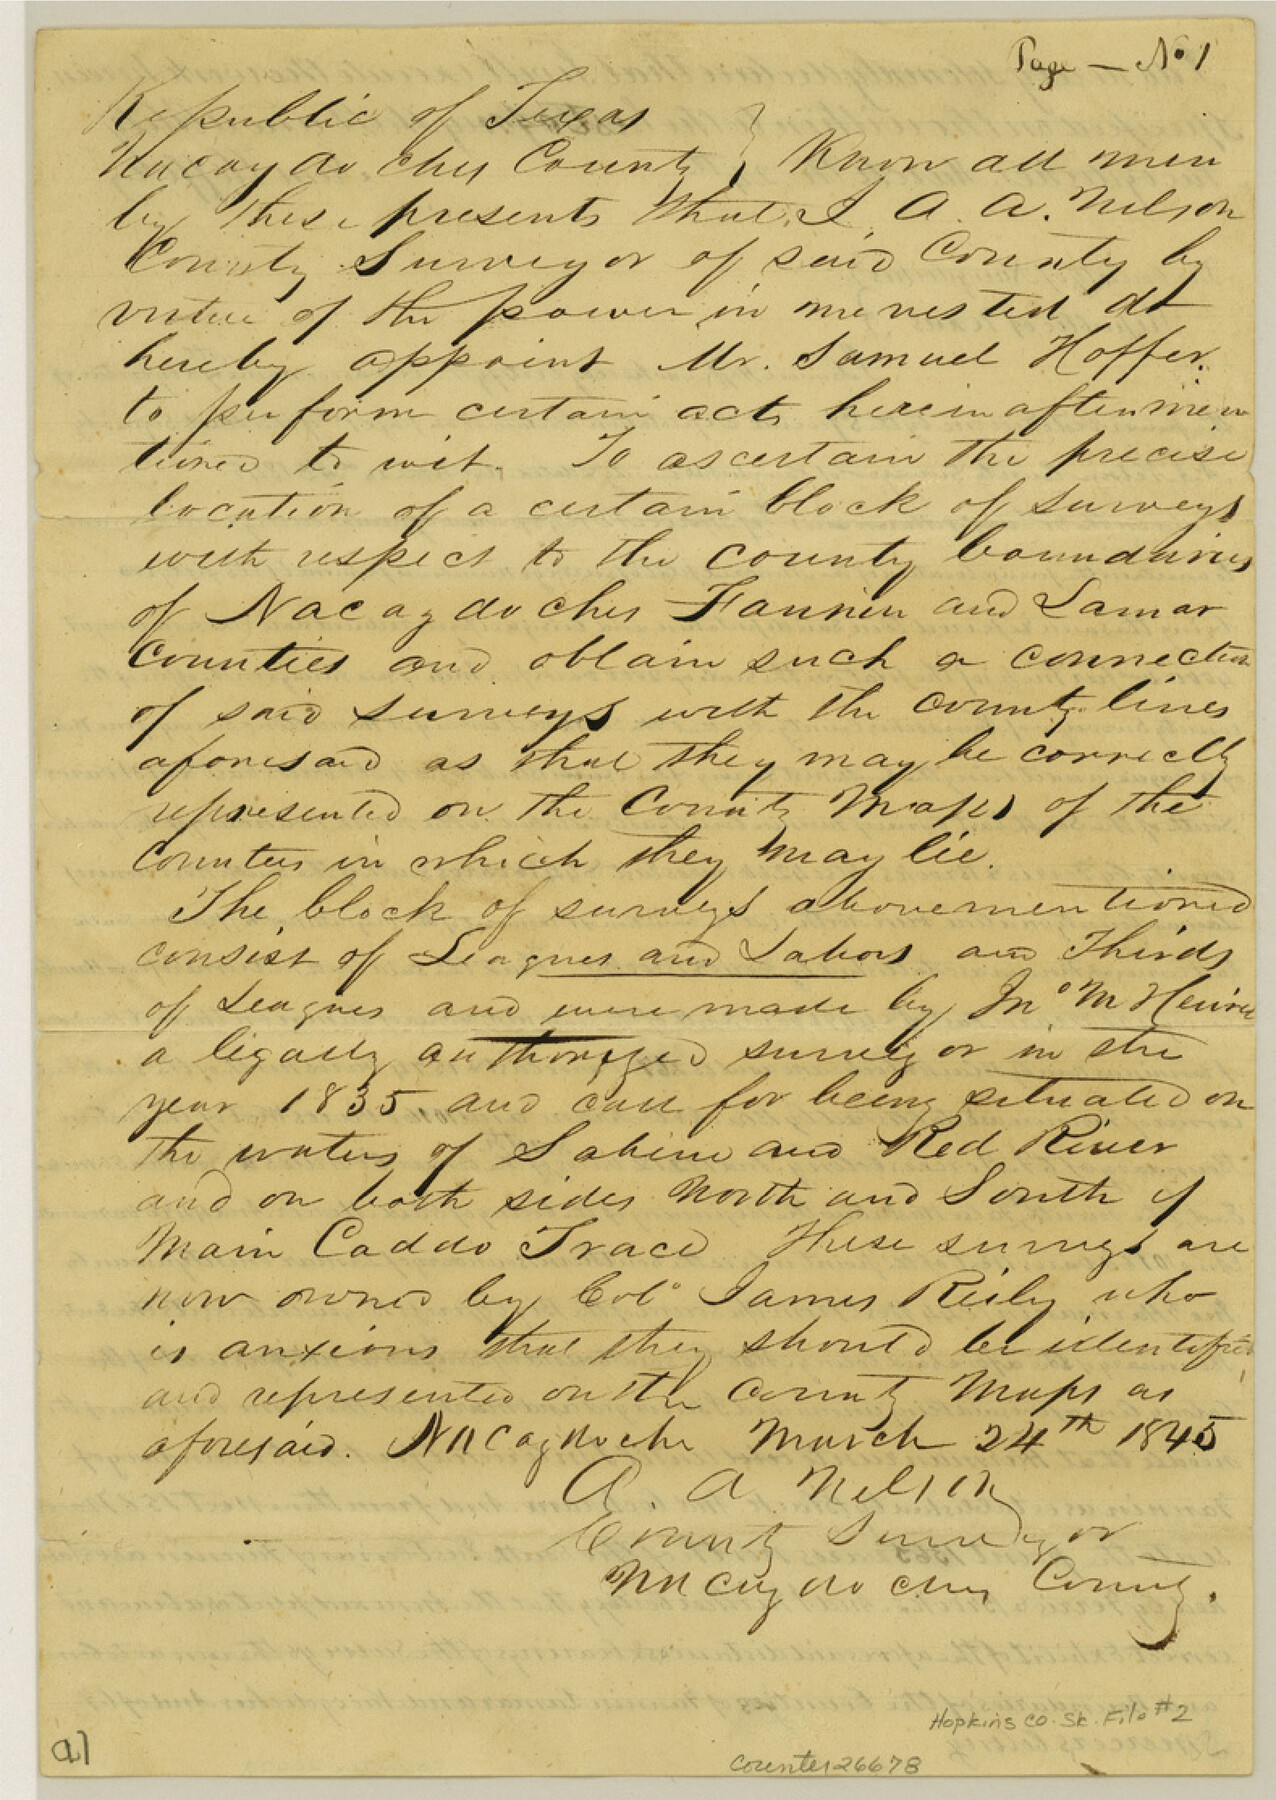 Page — No 1
Republic of Texas
Nacogdoches County } Know all men
by these presents that I, A. A. Nelson
County Surveyor of said County by
virtue of the power in me vested do
hereby appoint Mr. Samuel Hoffer.
to perform certain acts hereinaftermen
tioned to wit. To ascertain the precise
location of a certain block of surveys
with respect to the county boundaries
of Nacogdoches Fannin and Lamar
Counties and obtain such a connection
of said surveys with the county lines
aforesaid as that they may be correctly
represented on the County Maps of the
counties in which they may lie.
The block of surveys abovementioned
consist of Leagues and Labors and Thirds
of Leagues and were made by Jno M Henrie
a legally authorized surveyor in the
year 1835, and call for being situated on
the waters of Sabine and Red River
and on both sides North and South of
Main Caddo Trace These surveys are
now owned by Colo James Reily who
is anxious that they should be identified
and represented on the County Maps as
aforesaid. Nacogdoches March 24th 1845
A. A Nelson
County Surveyor
Nacogdoches County.
Hopkins Co. Sk. File #2
Counter 26678